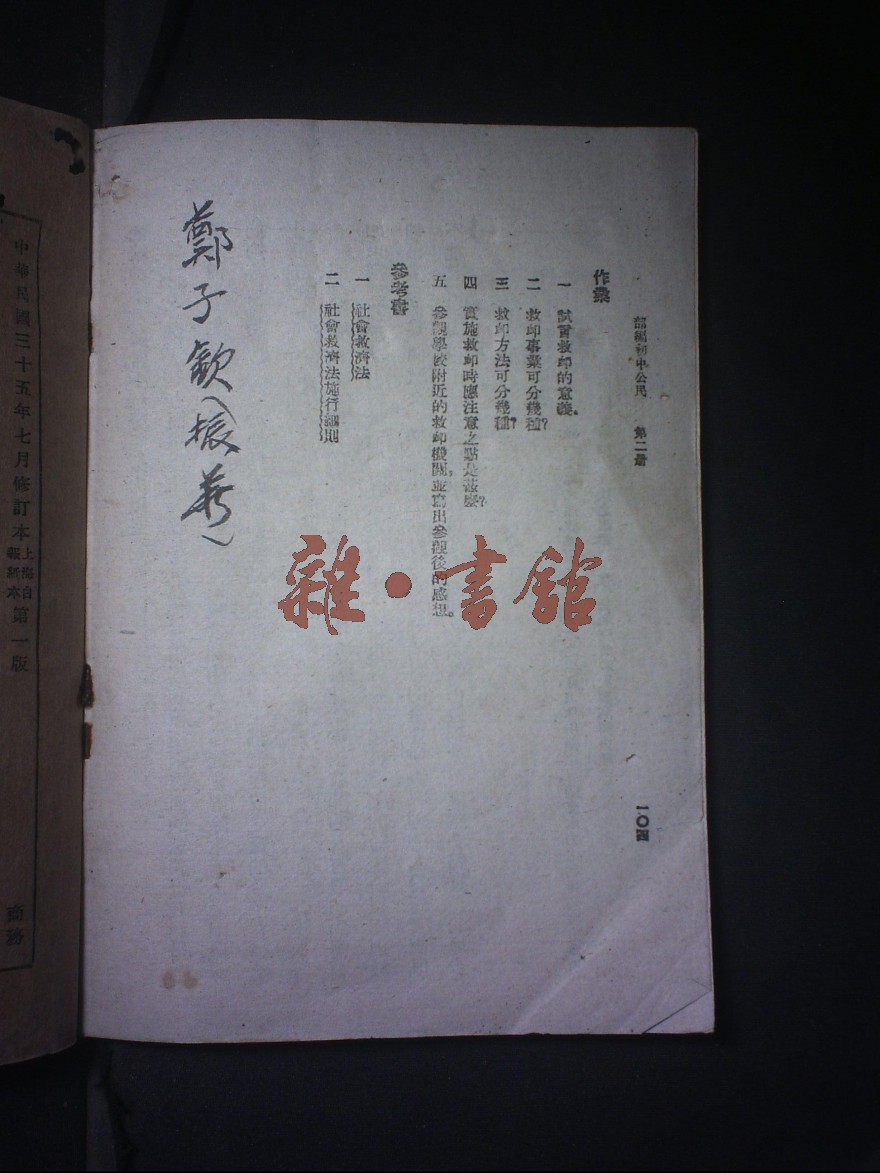 部編初中公民　第二册
作業
一　試言救卹的意義。
二　救卹事業可分幾種?
三　救卹方法可分幾種?
四　實施救卹時應注意之點是甚麼?
五　參觀學校附近的救卹機關,並寫出參觀後的感想。
參考書
一　社會救濟法
二　社會救濟法施行細則
一〇四
鄭子欽(振華)
雜·書館
中華民國三十五年七月修訂本上海白報紙本第一版
商務